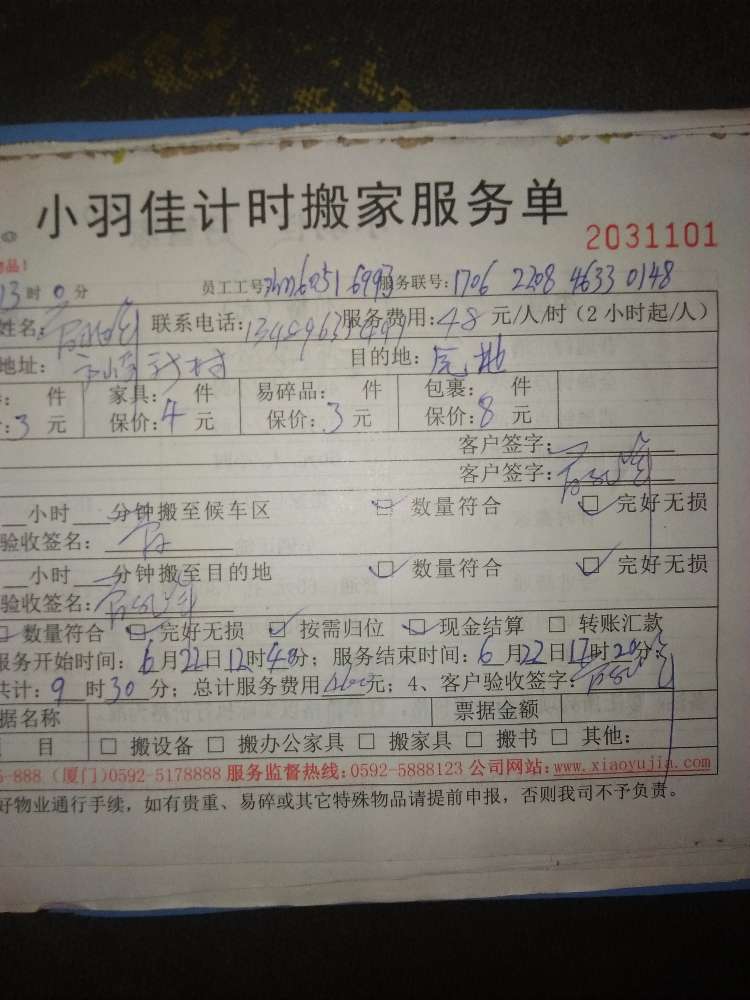 小羽佳计时搬家服务单
2031101
物品!
13时0分 员工工号: 服务联号:1706 2208 4633 0148
姓名: 联系电话: 服务费用:48元/人/时(2小时起/人)
地址: 目的地:
件 家具: 件 易碎品: 件 包裹: 件
:3元 保价:4元 保价:3元 保价:8元
客户签字:
客户签字:
小时 分钟搬至候车区 □ 数量符合 □ 完好无损
验收签名:
小时 分钟搬至目的地 □ 数量符合 □ 完好无损
验收签名:
□ 数量符合 □ 完好无损 □ 按需归位 □ 现金结算 □ 转账汇款
服务开始时间:6月22日12时48分;服务结束时间:6月22日17时20分;
共计:9时30分;总计服务费用 元;4、客户验收签字:
据名称 票据金额
目 □ 搬设备 □ 搬办公家具 □ 搬家具 □ 搬书 □ 其他:
-888 (厦门)0592-5178888 服务监督热线:0592-5888123 公司网站:www.xiaoyujia.com
好物业通行手续,如有贵重、易碎或其它特殊物品请提前申报,否则我司不予负责。